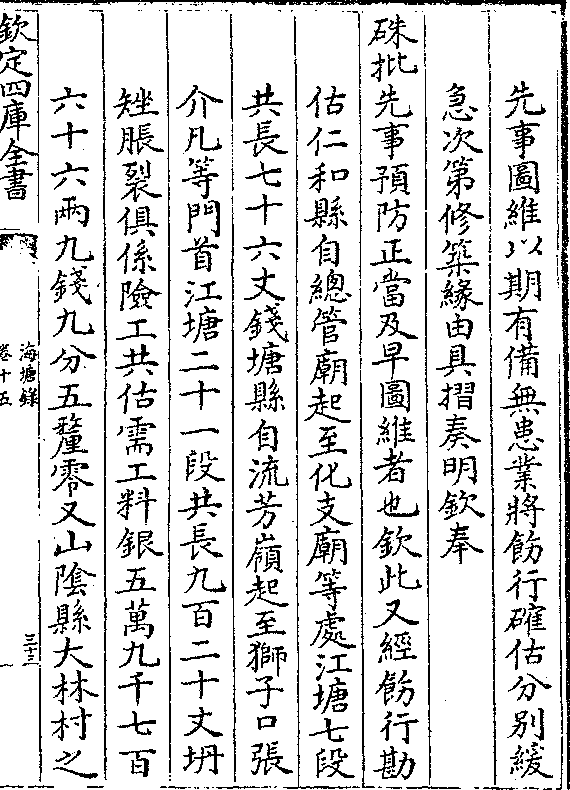 先事圖維以期有備無患業將飭行確估分别緩
急次第修築緣由具摺奏明欽奉
硃批先事預防正當及早圖維者也欽此又經飭行勘
估仁和縣自總管廟起至化支廟等處江塘七段
共長七十六丈錢塘縣自流芳嶺起至獅子口張
介凡等門首江塘二十一段共長九百二十丈坍
矬脹裂俱係險工共估需工料銀五萬九千七百
六十六兩九錢九分五釐零又山陰縣大林村之
欽定四庫全書
海塘錄
卷十五
三十三